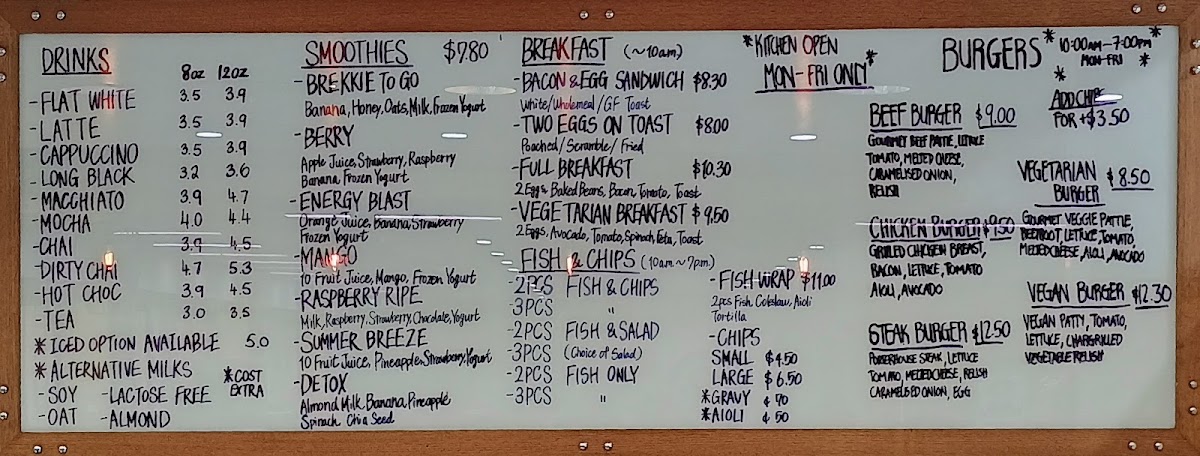 DRINKS
8oz 12oz
-FLAT WHITE 3.5 3.9
-LATTE 3.5 3.9
-CAPPUCCINO 3.5 3.9
-LONG BLACK 3.2 3.6
-MACCHIATO 3.9 4.7
-MOCHA 4.0 4.4
-CHAI 3.9 4.5
-DIRTY CHAI 4.7 5.3
-HOT CHOC 3.9 4.5
-TEA 3.0 3.5
*ICED OPTION AVAILABLE 5.0
*ALTERNATIVE MILKS *COST EXTRA
-SOY -LACTOSE FREE
-OAT -ALMOND
SMOOTHIES $7.80
-BREKKIE TO GO
Banana, Honey, Oats, Milk, Frozen Yogurt
-BERRY
Apple Juice, Strawberry, Raspberry
Banana, Frozen Yogurt
-ENERGY BLAST
Orange Juice, Banana, Strawberry
Frozen Yogurt
-MANGO
10 Fruit Juice, Mango, Frozen Yogurt
-RASPBERRY RIPE
Milk, Raspberry, Strawberry, Chocolate, Yogurt
-SUMMER BREEZE
10 Fruit Juice, Pineapple, Strawberry, Yogurt
-DETOX
Almond Milk, Banana, Pineapple
Spinach Chia Seed
BREAKFAST (~10am)
-BACON & EGG SANDWICH $8.30
White/Wholemeal/GF Toast
-TWO EGGS ON TOAST $8.00
Poached/Scramble/Fried
-FULL BREAKFAST $10.30
2 Eggs, Baked Beans, Bacon, Tomato, Toast
-VEGETARIAN BREAKFAST $9.50
2 Eggs, Avocado, Tomato, Spinach, Feta, Toast
FISH & CHIPS (10am~7pm)
-2PCS FISH & CHIPS
-3PCS "
-2PCS FISH & SALAD
-3PCS (Choice of Salad)
-2PCS FISH ONLY
-3PCS "
-FISH WRAP $11.00
2pcs Fish, Coleslaw, Aioli
Tortilla
-CHIPS
SMALL $4.50
LARGE $6.50
*GRAVY ¢70
*AIOLI ¢50
*KITCHEN OPEN
MON-FRI ONLY*
BURGERS
*10:00AM-7:00PM*
* MON-FRI *
ADD CHIPS
FOR +$3.50
BEEF BURGER $9.00
GOURMET BEEF PATTIE, LETTUCE
TOMATO, MELTED CHEESE,
CARAMELISED ONION,
RELISH
CHICKEN BURGER $9.50
GRILLED CHICKEN BREAST,
BACON, LETTUCE, TOMATO
AIOLI, AVOCADO
STEAK BURGER $12.50
PORTERHOUSE STEAK, LETTUCE
TOMATO, MELTED CHEESE, RELISH
CARAMELISED ONION, EGG
VEGETARIAN
BURGER $8.50
GOURMET VEGGIE PATTIE,
BEETROOT, LETTUCE, TOMATO,
MELTED CHEESE, AIOLI, AVOCADO
VEGAN BURGER $12.30
VEGAN PATTY, TOMATO,
LETTUCE, CHARGRILLED
VEGETABLE RELISH